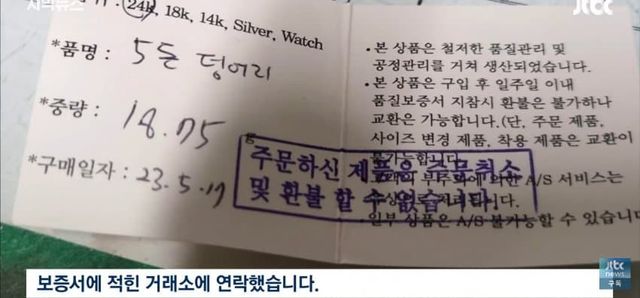 jtbc
24k, 18k, 14k, Silver, Watch
*품명 : 5돈 덩어리
*중량 : 18.75
*구매일자 : 23.5.17
• 본 상품은 철저한 품질관리 및
공정관리를 거쳐 생산되었습니다.
• 본 상품은 구입 후 일주일 이내
품질보증서 지참시 환불은 불가하나
교환은 가능합니다.(단, 주문 제품,
사이즈 변경 제품, 착용 제품은 교환이
불가능합니다.
의한 A/S 서비스는
• 일부 상품은 A/S 불가능할 수 있습니다
주문하신 제품은 주문취소
및 환불 할 수 없습니다.
보증서에 적힌 거래소에 연락했습니다.
jtbc
news
구독